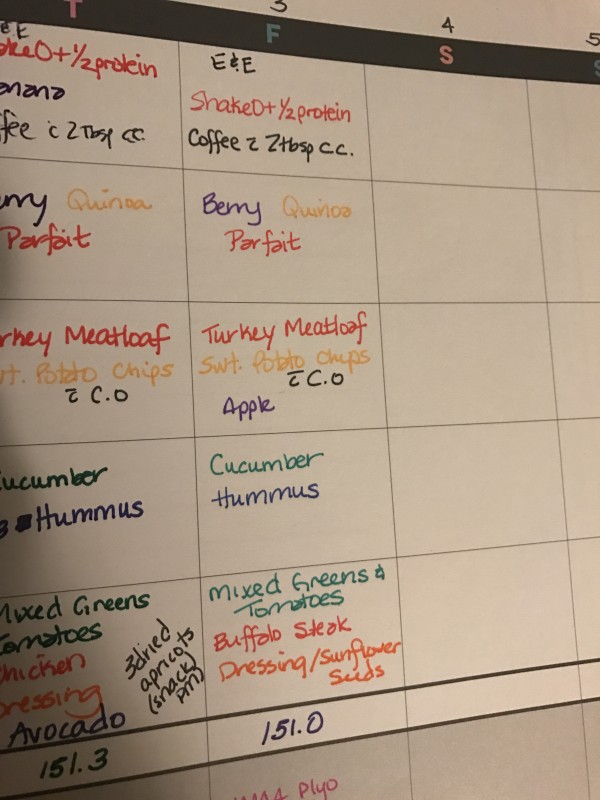 3
4
5
T
F
S
S
E&E
E&E
ShakeO+½protein
ShakeO+½protein
Coffee c̄ 2Tbsp CC.
Coffee c̄ 2tbsp C.C.
Berry Quinoa
Parfait
Berry Quinoa
Parfait
Meatloaf
Potato Chips
c̄ C.O
Turkey Meatloaf
Swt. Potato Chips
c̄ C.O
Apple
Cucumber
Hummus
Cucumber
Hummus
Mixed Greens
Tomatoes
Chicken
Dressing
Avocado
3 dried
apricots
(snack)
pm)
Mixed Greens &
Tomatoes
Buffalo Steak
Dressing/Sunflower
Seeds
151.3
151.0
Plyo